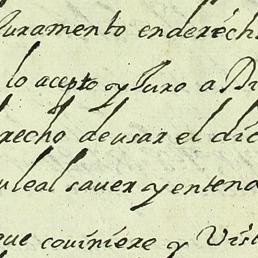 Juramento enderech
lo acepto y Juro a Di
recho deusar el dic
u leal sauer y entend
que conuiniere y Vis